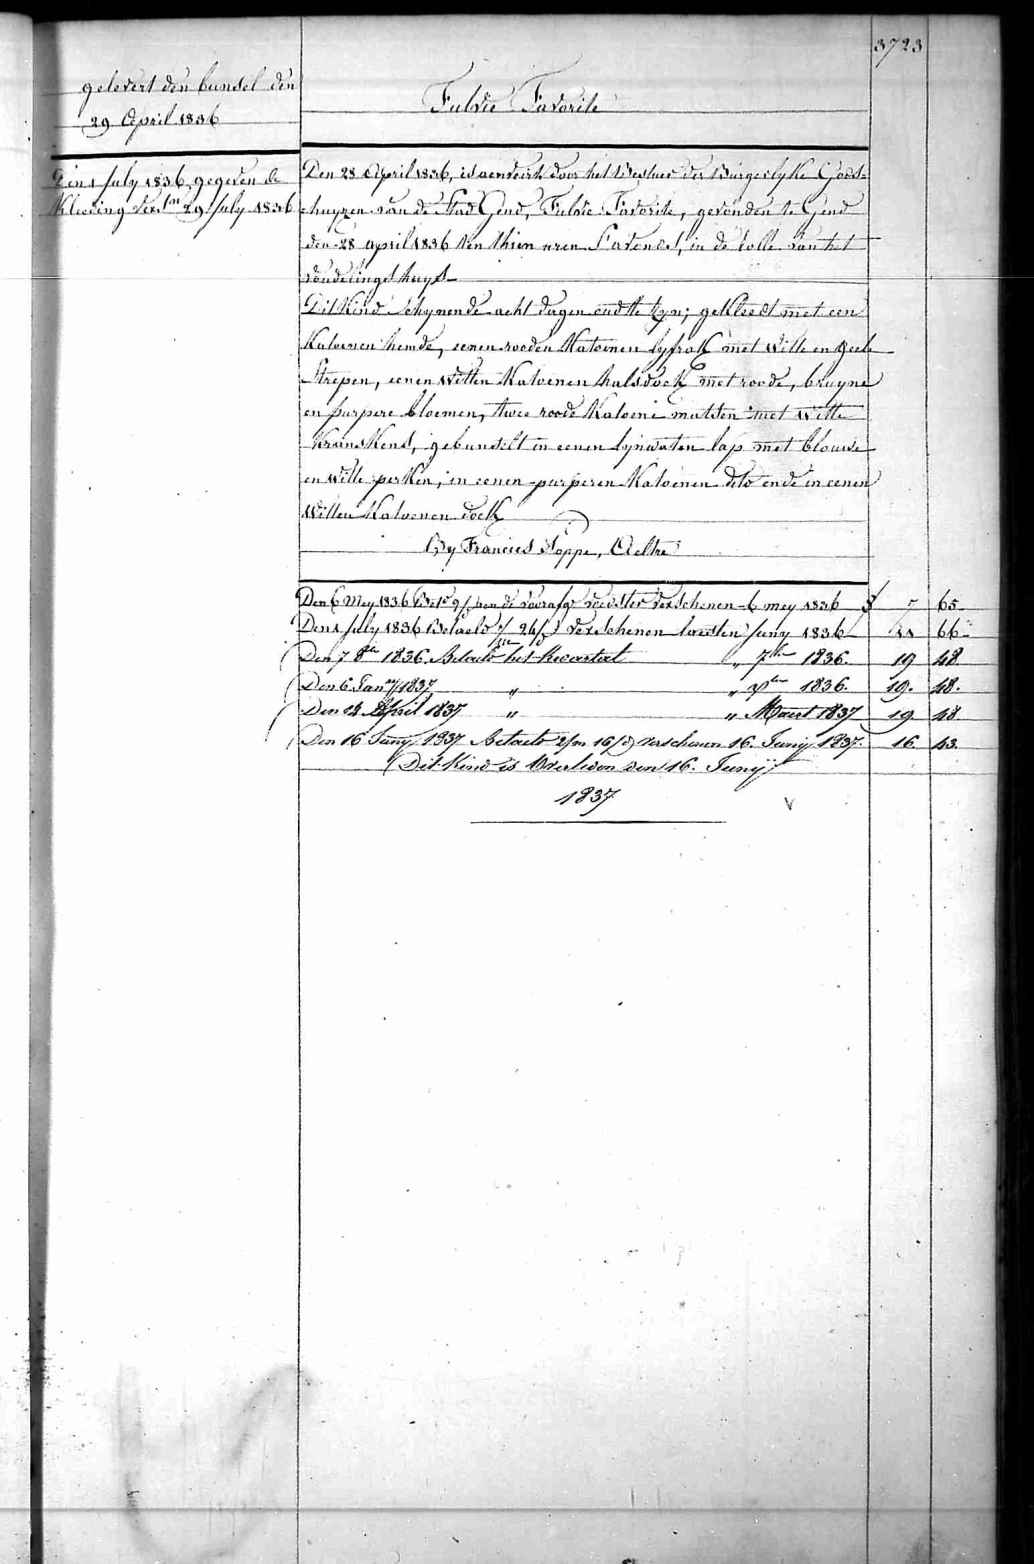 3723
gelevert den bunsel den
29 April 1836
Fulvie Favorite
Den 1 July 1836, gegeven de
Kleeding 29 July 1836
Den 28 April 1836, is aenveirt door het Bestuer der Burgerlyke Gods-
huyzen van de Stad Gend, Fulvie Favorite, gevonden te Gend
den 28 april 1836 ten thien uren s'avends, in de rolle van het
vondelingshuys
Dit Kind schynende acht dagen oud te zyn; gekleedt met een
Katoenen hemde, eenen rooden Katoenen lyfrok met witte en geele
strepen, eenen witten Katoenen halsdoek met roode, bruyne
en purpere bloemen, twee roode Katoene mutsen met witte
kranskens, gebunselt in eenen lynwaten lap met blouwe
en witte perken, in eenen purperen Katoenen dito ende in eenen
witten Katoenen doek
By Francies Poppe, Aeltre
Den 6 Mey 1836 aen de voorafge verschenen 6 mey 1836 5 65
Den 1 July 1836 Betaeld 24/ verschenen laesten Juny 1836 11 66
Den 7 8be 1836 Betaeld het kwartael " 7ber 1836. 19 48
Den 6 Jany 1837 " " xber 1836. 19. 48.
Den 12 April 1837 " " Maert 1837 19 48
Den 16 Juny 1837 Betaeld 2/m 16/d verschenen 16. Juny 1837. 16 43.
Dit Kind is Overleden den 16. Juny
1837